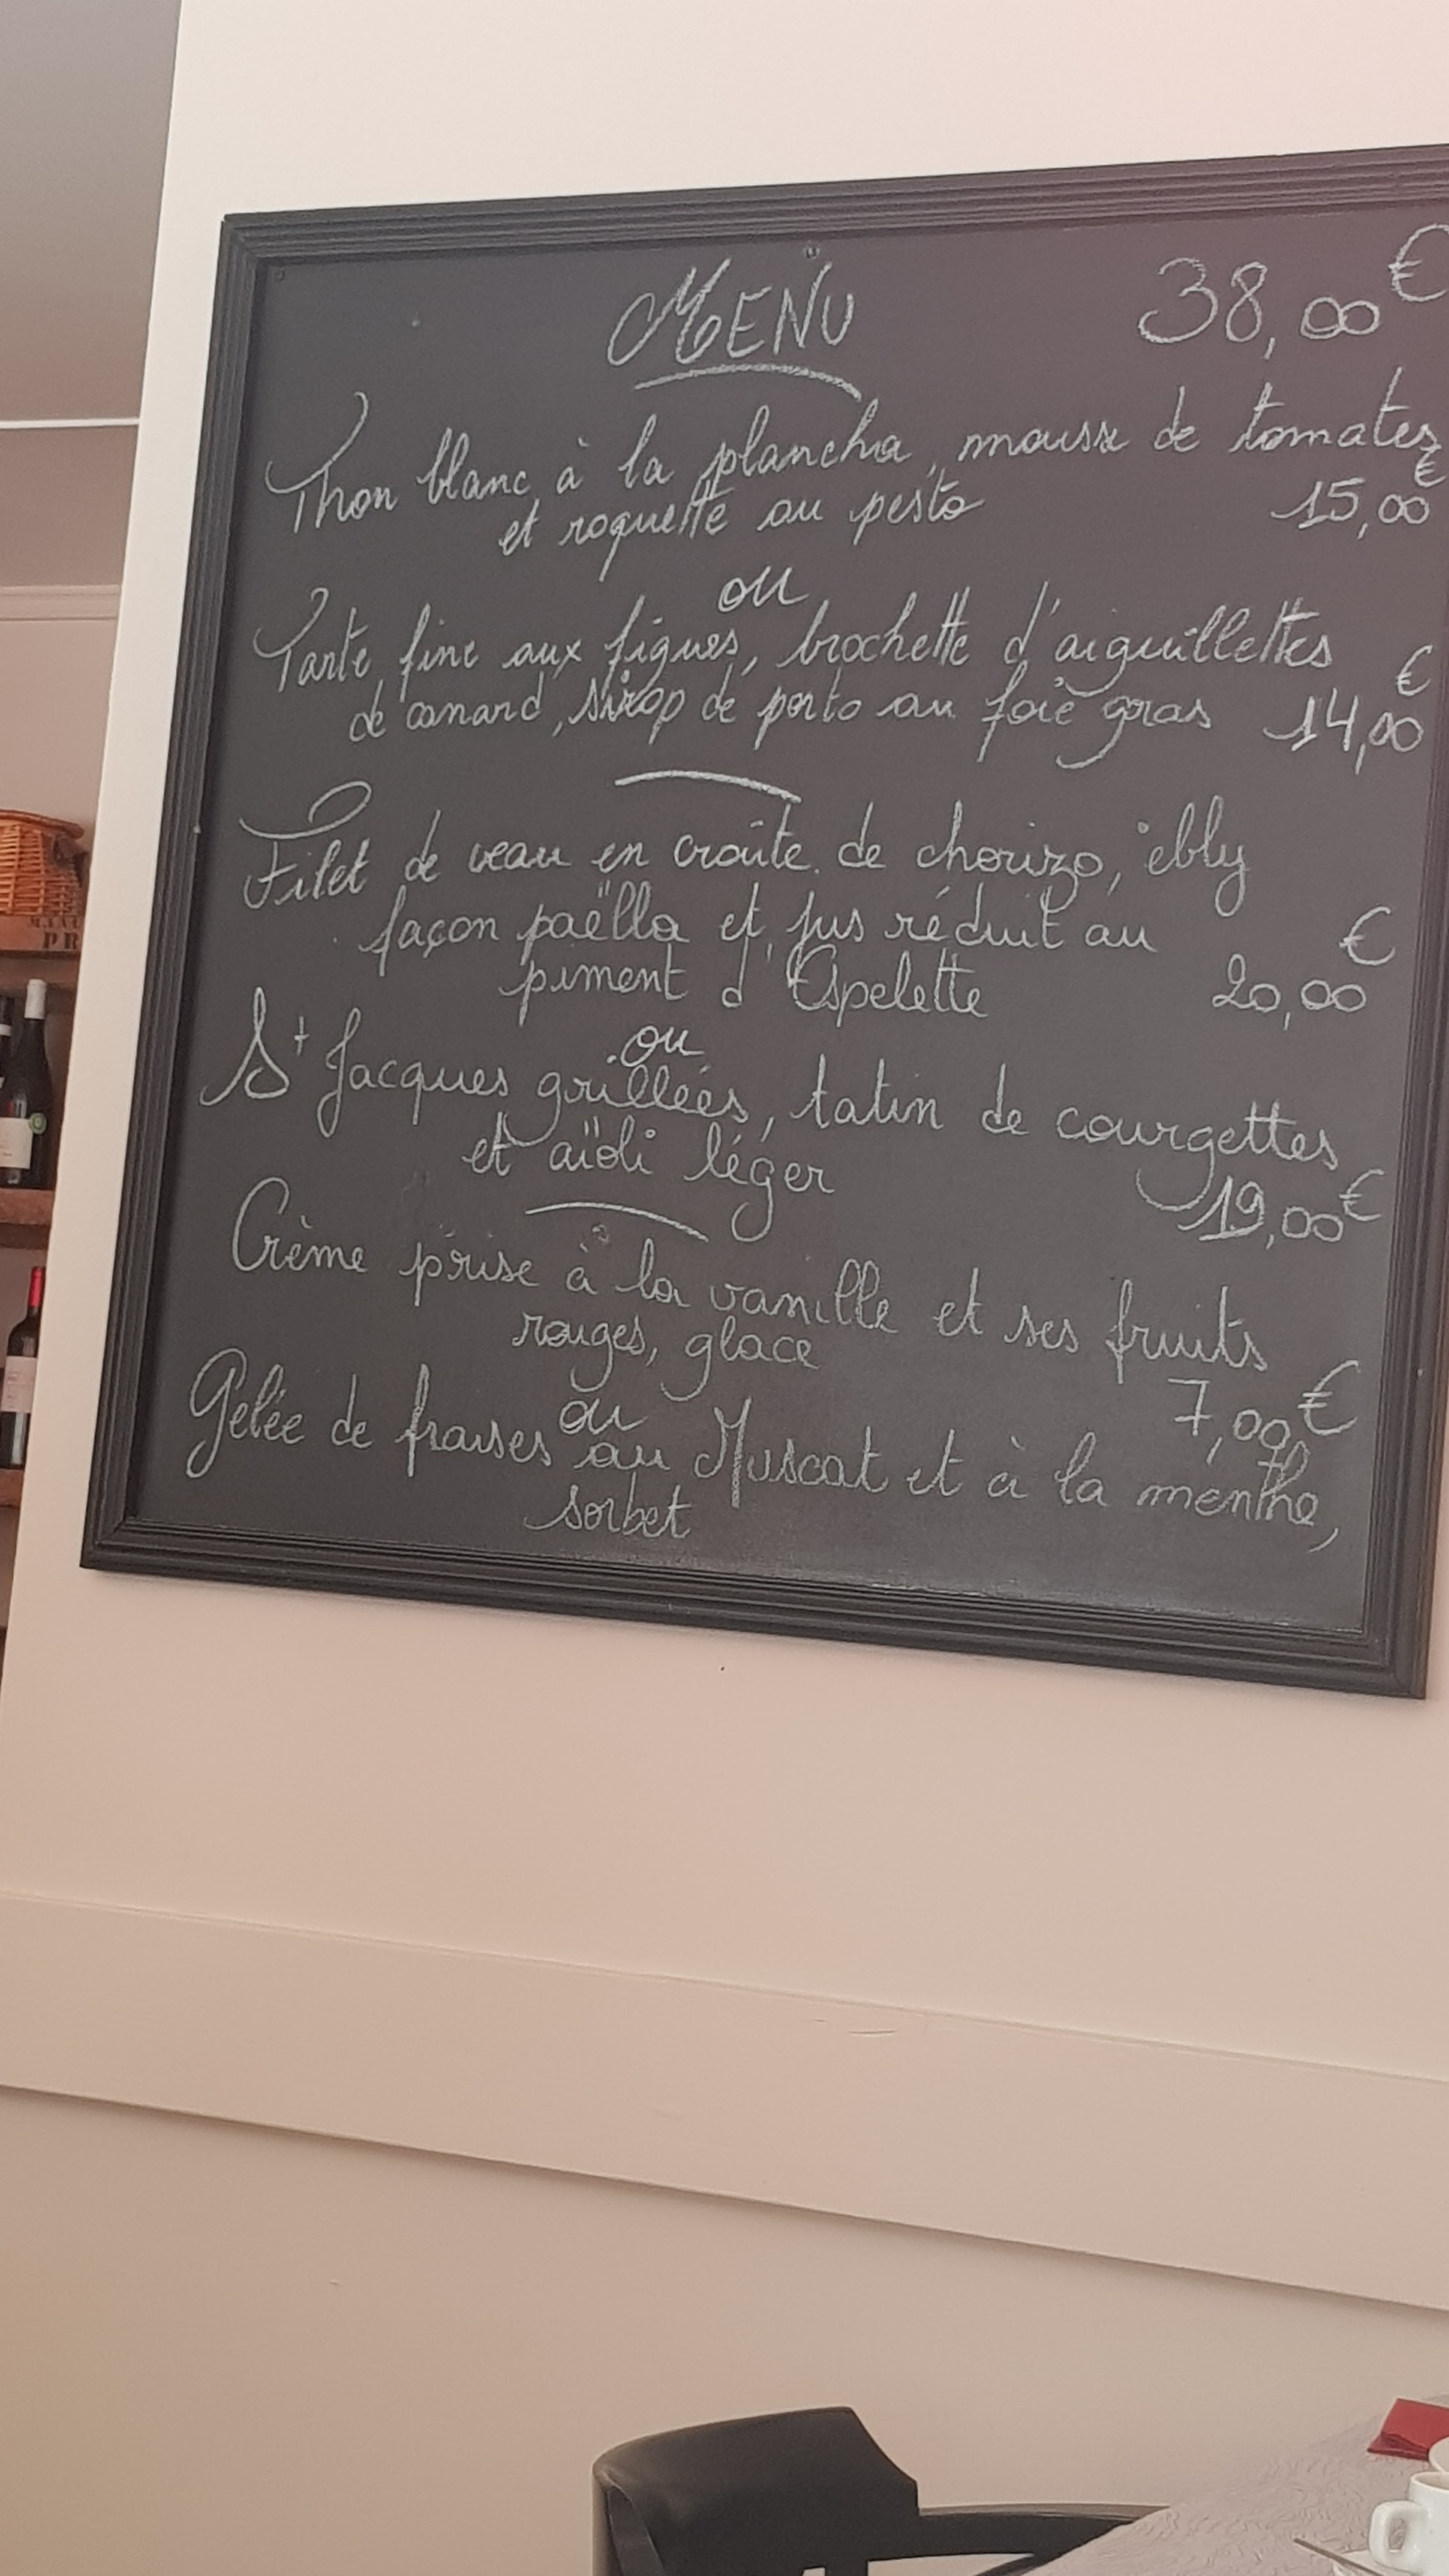 MENU 38,00€
Thon blanc à la plancha, mousse de tomates
et roquette au pesto 15,00€
ou
Tarte fine aux figues, brochette d'aiguillettes
de canard, sirop de porto au foie gras 14,00€
Filet de veau en croûte de chorizo, ébly
façon paëlla et jus réduit au
piment d'Espelette 20,00€
ou
St Jacques grillées, tatin de courgettes
et aïoli léger 19,00€
Crème prise à la vanille et ses fruits
rouges, glace 7,00€
ou
Gelée de fraises au Muscat et à la menthe,
sorbet
PR